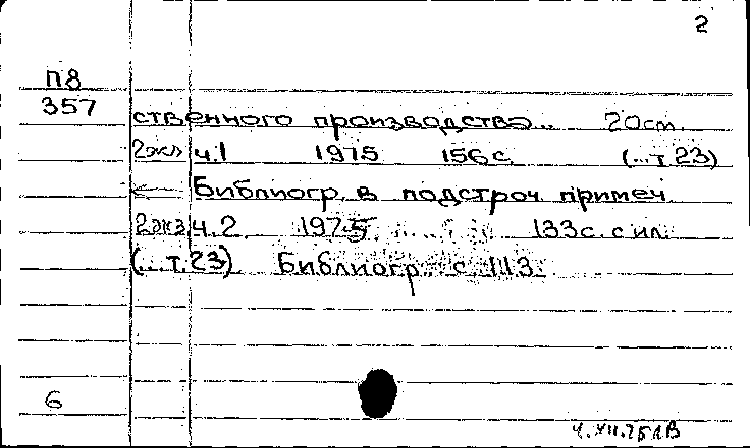 2
П8
357
ственного производства.. 20см.
2экз ч.1 1975 156 с. (...т.23)
Библиогр. в подстроч. примеч.
2экз. ч.2. 1975. 133 с. с ил.
(...т.23) Библиогр. с. 113.
6